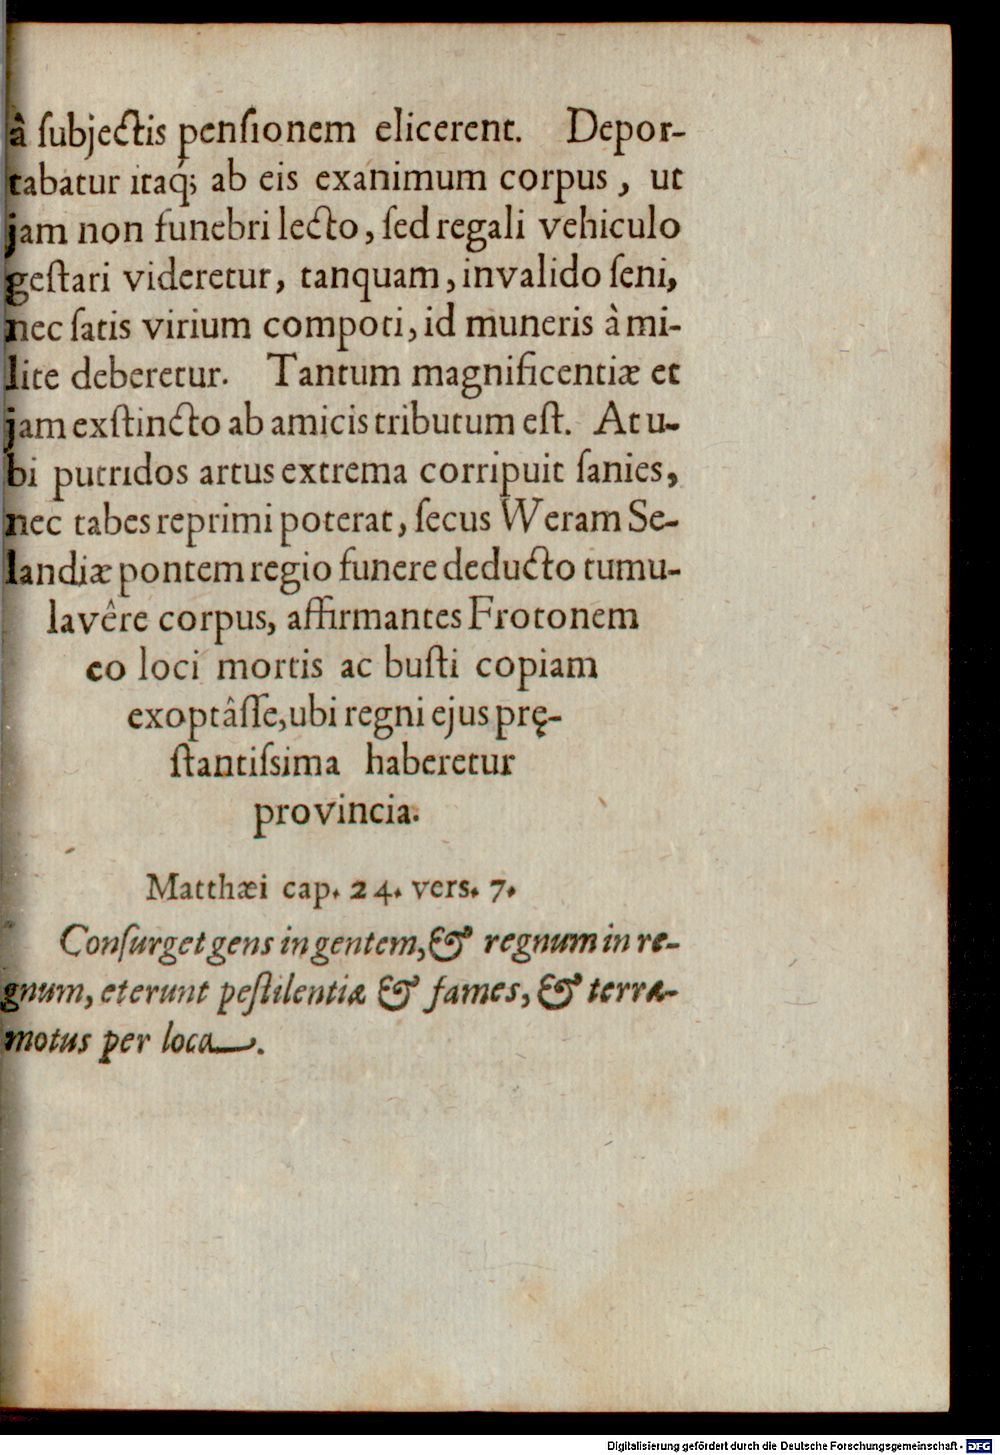 â ſubjectis penſionem elicerent. Depor-
tabatur itaq́; ab eis exanimum corpus, ut
jam non funebri lecto, ſed regali vehiculo
geſtari videretur, tanquam, invalido ſeni,
nec ſatis virium compoti, id muneris à mi-
lite deberetur. Tantum magnificentiæ et
jam exſtincto ab amicis tributum eſt. At u-
bi putridos artus extrema corripuit ſanies,
nec tabes reprimi poterat, ſecus Weram Se-
landiæ pontem regio funere deducto tumu-
lavêre corpus, affirmantes Frotonem
eo loci mortis ac buſti copiam
exoptâſſe, ubi regni ejus prę-
ſtantiſsima haberetur
provincia.
Matthæi cap. 24. vers. 7.
Conſurget gens in gentem, & regnum in re-
gnum, et erunt peſtilentiæ & fames, & terræ-
motus per loca—.
Digitalisierung gefördert durch die Deutsche Forschungsgemeinschaft - DFG